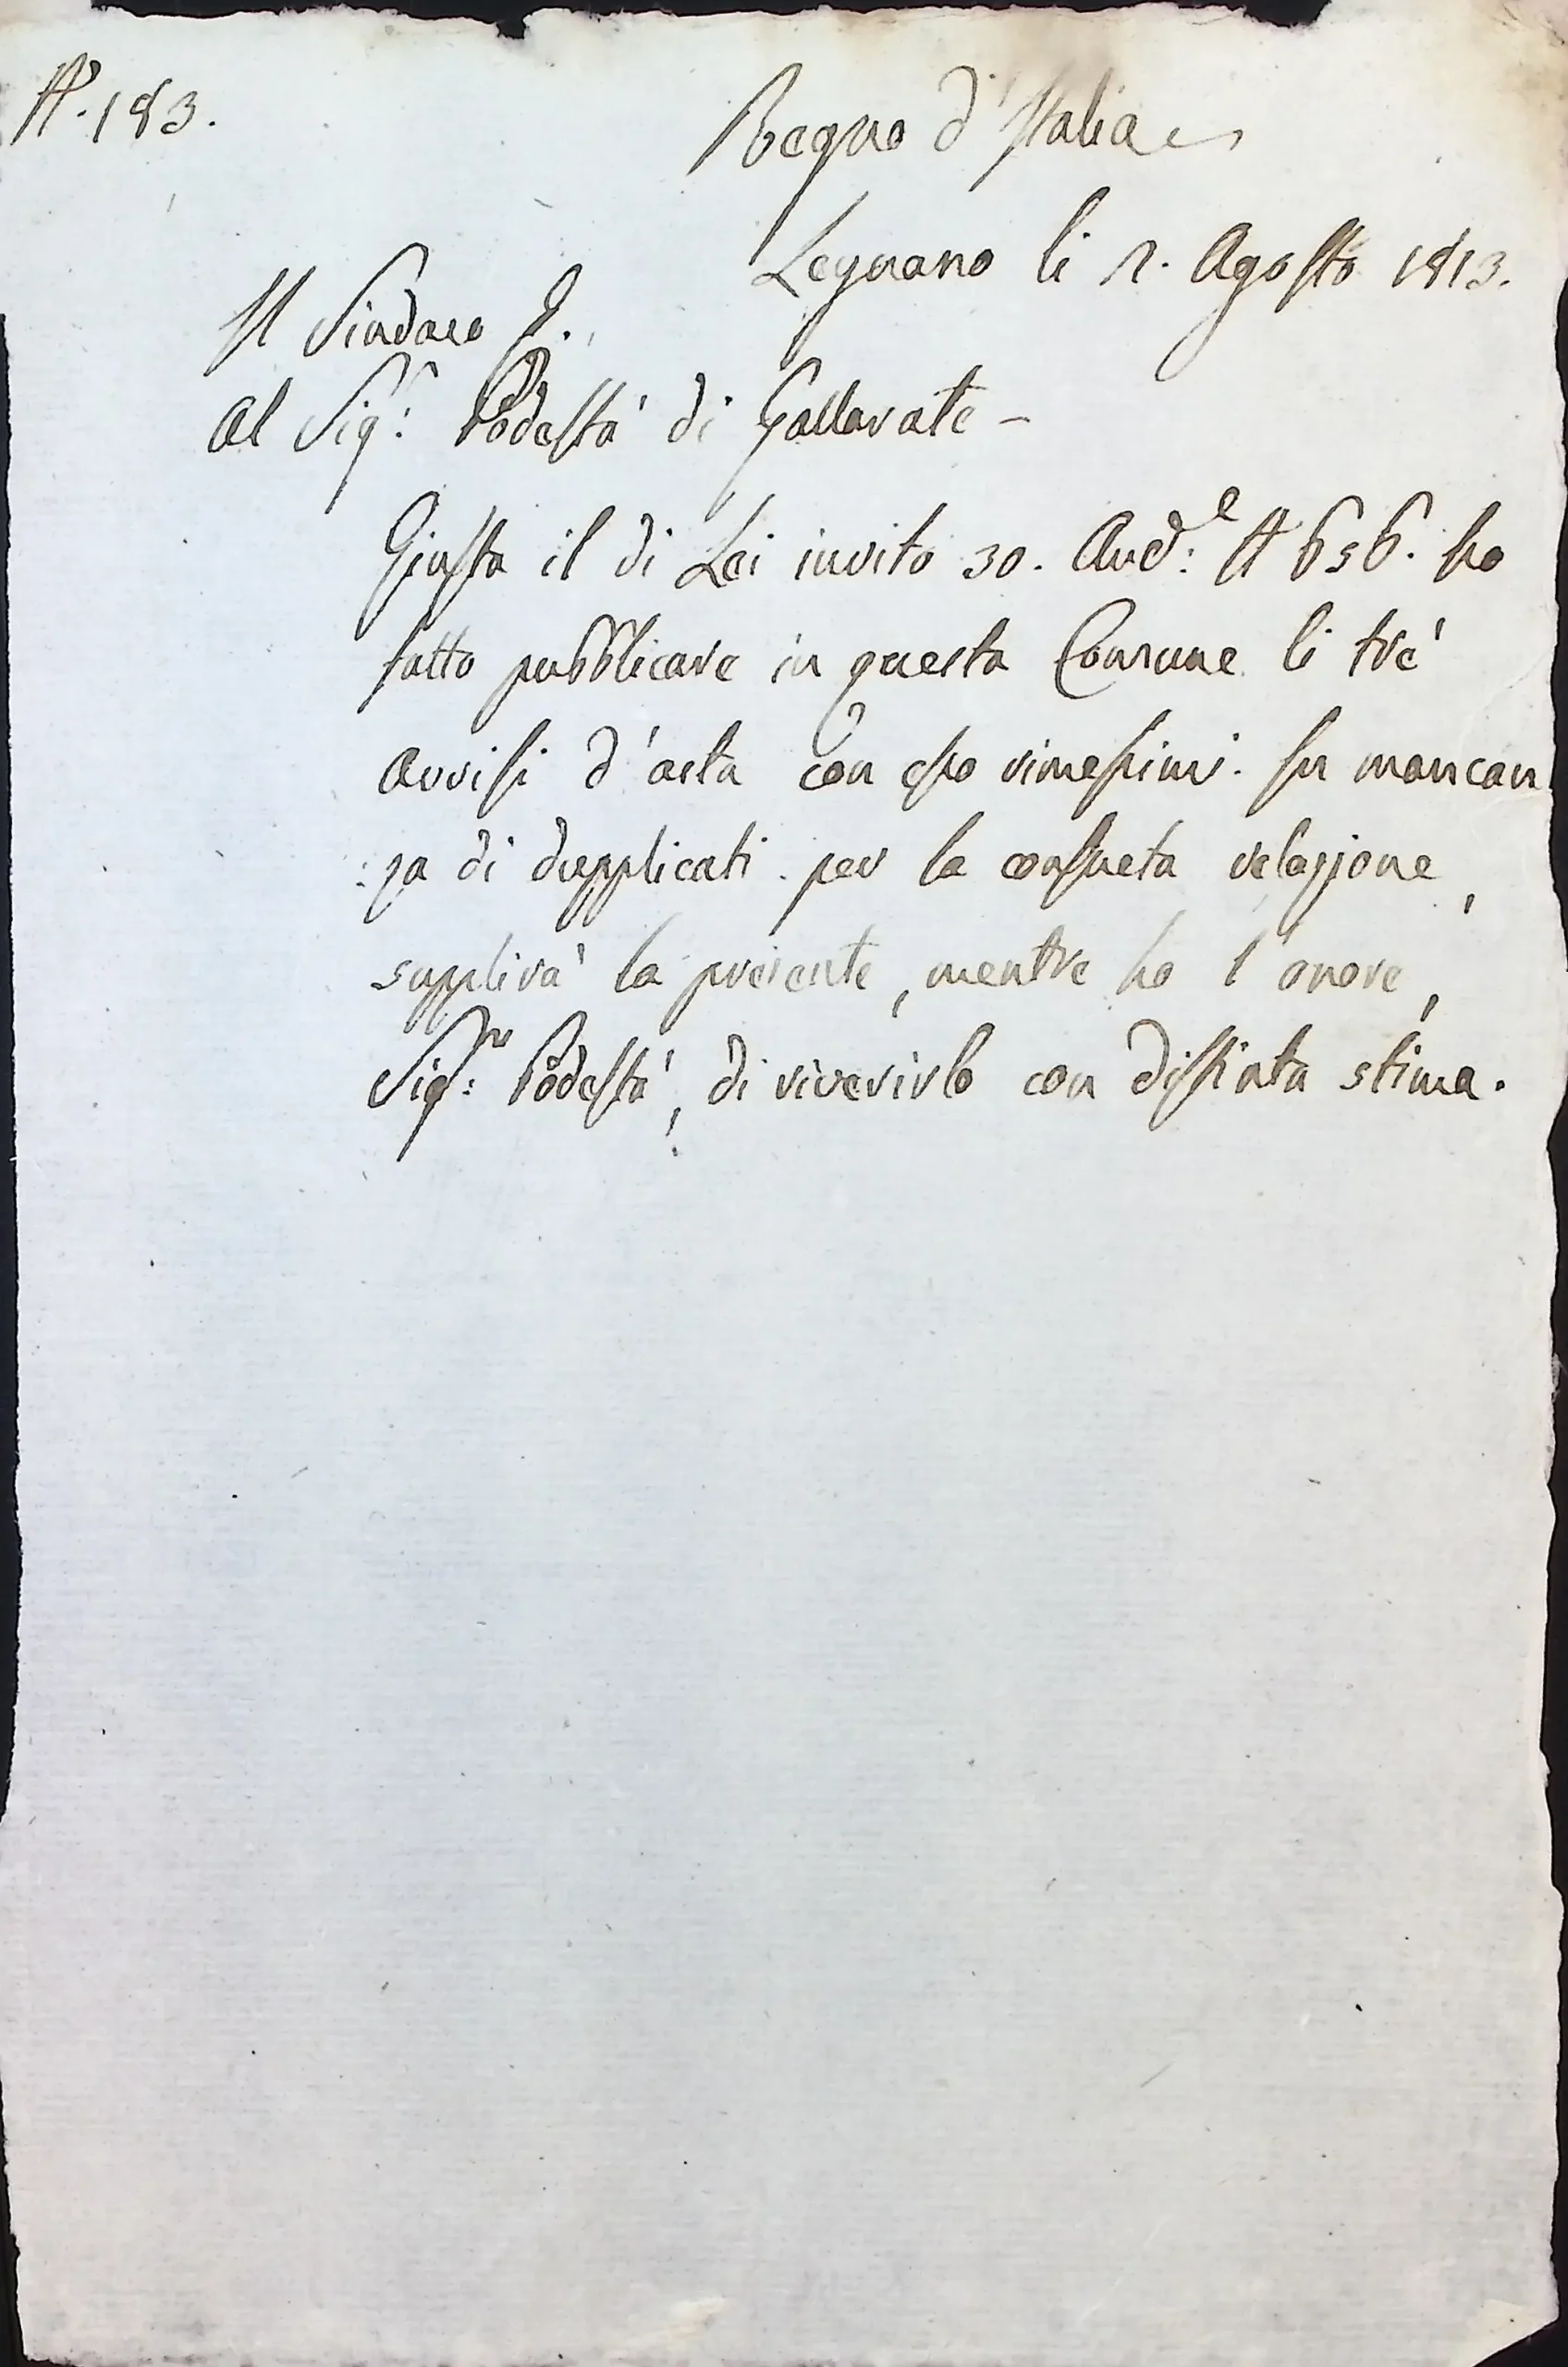 N.° 183.
Regno d'Italia
Legnano li 2. Agosto 1813.
Il Sindaco
Al Sig.r Podestà di Gallarate -
Giusta il di Lei invito 30. And:e N 656. ho
fatto pubblicare in questa Comune li trè
avvisi d'asta con esso rimessimi. In mancan
:za di dupplicati per la consueta relazione,
supplirà la presente, mentre ho l'onore,
Sig:re Podestà, di riverirlo con distinta stima.